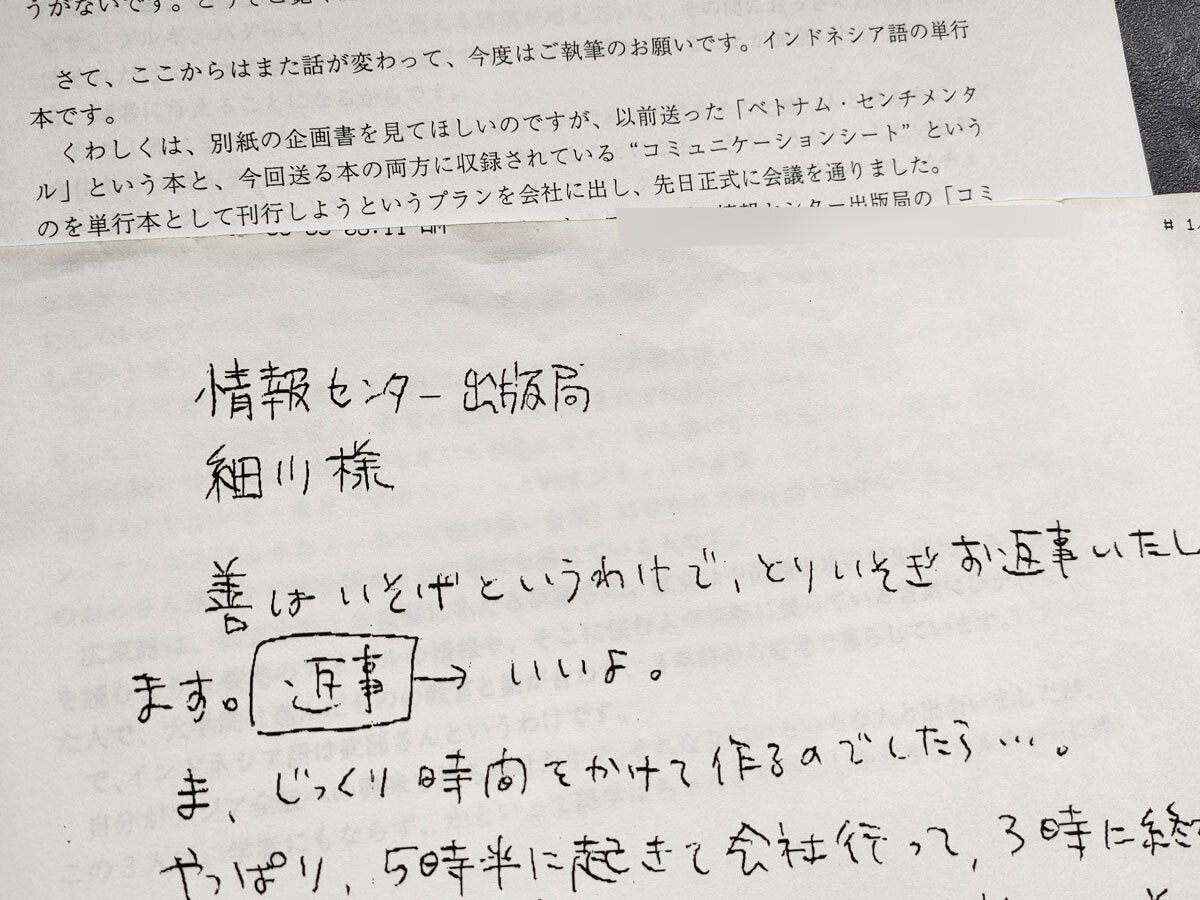 うがないです。どうぞご覧
さて、ここからはまた話が変わって、今度はご執筆のお願いです。インドネシア語の単行
本です。
くわしくは、別紙の企画書を見てほしいのですが、以前送った「ベトナム・センチメンタ
ル」という本と、今回送る本の両方に収録されている“コミュニケーションシート”という
のを単行本として刊行しようというプランを会社に出し、先日正式に会議を通りました。
情報センター出版局の「コミ
# 1
情報センター出版局
細川様
善はいそげというわけで、とりいそぎお返事いたし
ます。返事→いいよ。
ま、じっくり時間をかけて作るのでしたら…。
やっぱり、5時半に起きて会社行って、3時に終